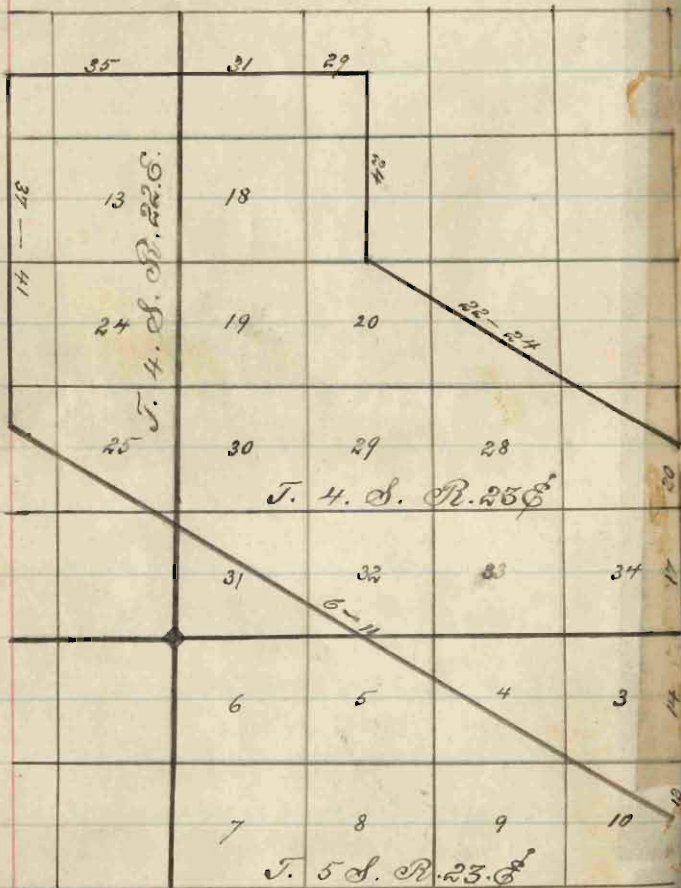 35 31 29
24
37 — 41
13 18
T. 4. S. R. 22. E.
24 19 20
22 - 24
25 30 29 28
20
T. 4. S. R. 23 E
31 32 33 34 17
6 - 11
6 5 4 3 14
7 8 9 10 12
T. 5 S. R. 23. E